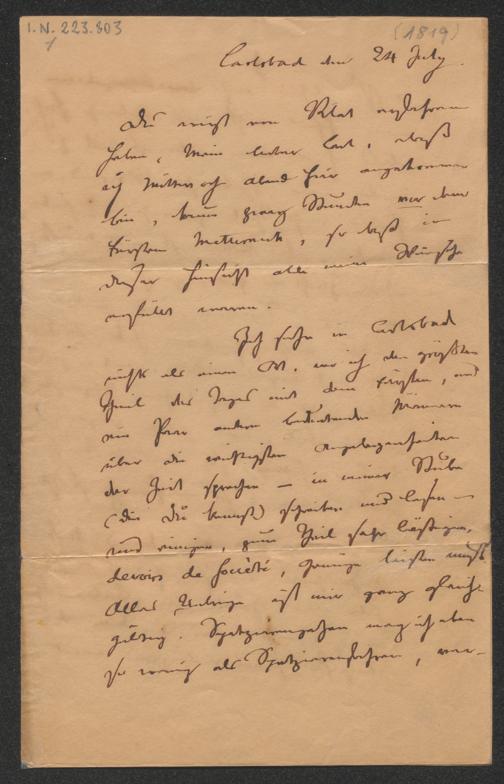 I.N. 223.803
1
(1819)
Carlsbad den 24 July.
Du wirst von Pilat erfahren
haben, mein lieber Carl, daß
ich Mittwoch Abend hier angekommen
bin, kaum zwey Stunden vor dem
Fürsten Metternich, so daß in
dieser Hinsicht alle meine Wünsche
erfüllt waren.
Ich sehe in Carlsbad
nichts als einen Ort, wo ich den größten
Theil des Tages mit dem Fürsten, und
ein Paar andern bedeutenden Männern
über die wichtigsten Angelegenheiten
der Zeit sprechen — in meiner Stube
(die Du kennst) schreiben und lesen —
und einigen, zum Theil sehr lästigen,
devoirs de Société, Genüge leisten muß.
Alles Uebrige ist mir ganz gleich-
gültig. Spatzierengehen mag ich eben
so wenig als Spatzierenfahren,